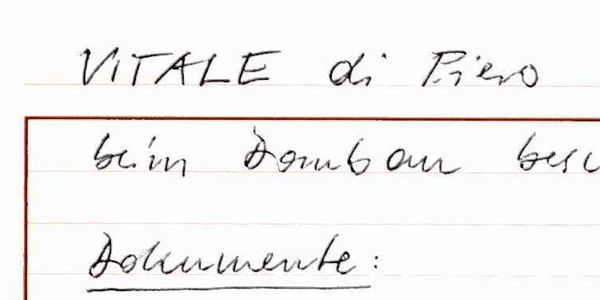 VITALE di Piero
beim Dombau besc
Dokumente: